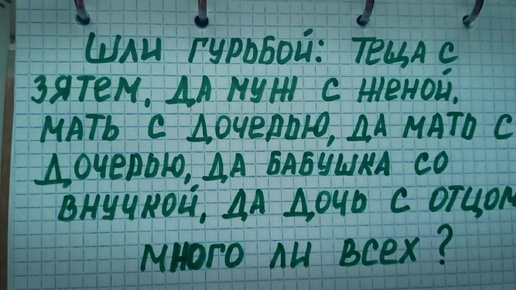 Шли гурьбой: теща с
зятем, да муж с женой.
мать с дочерью, да мать с
дочерью, да бабушка со
внучкой, да дочь с отцом
много ли всех?